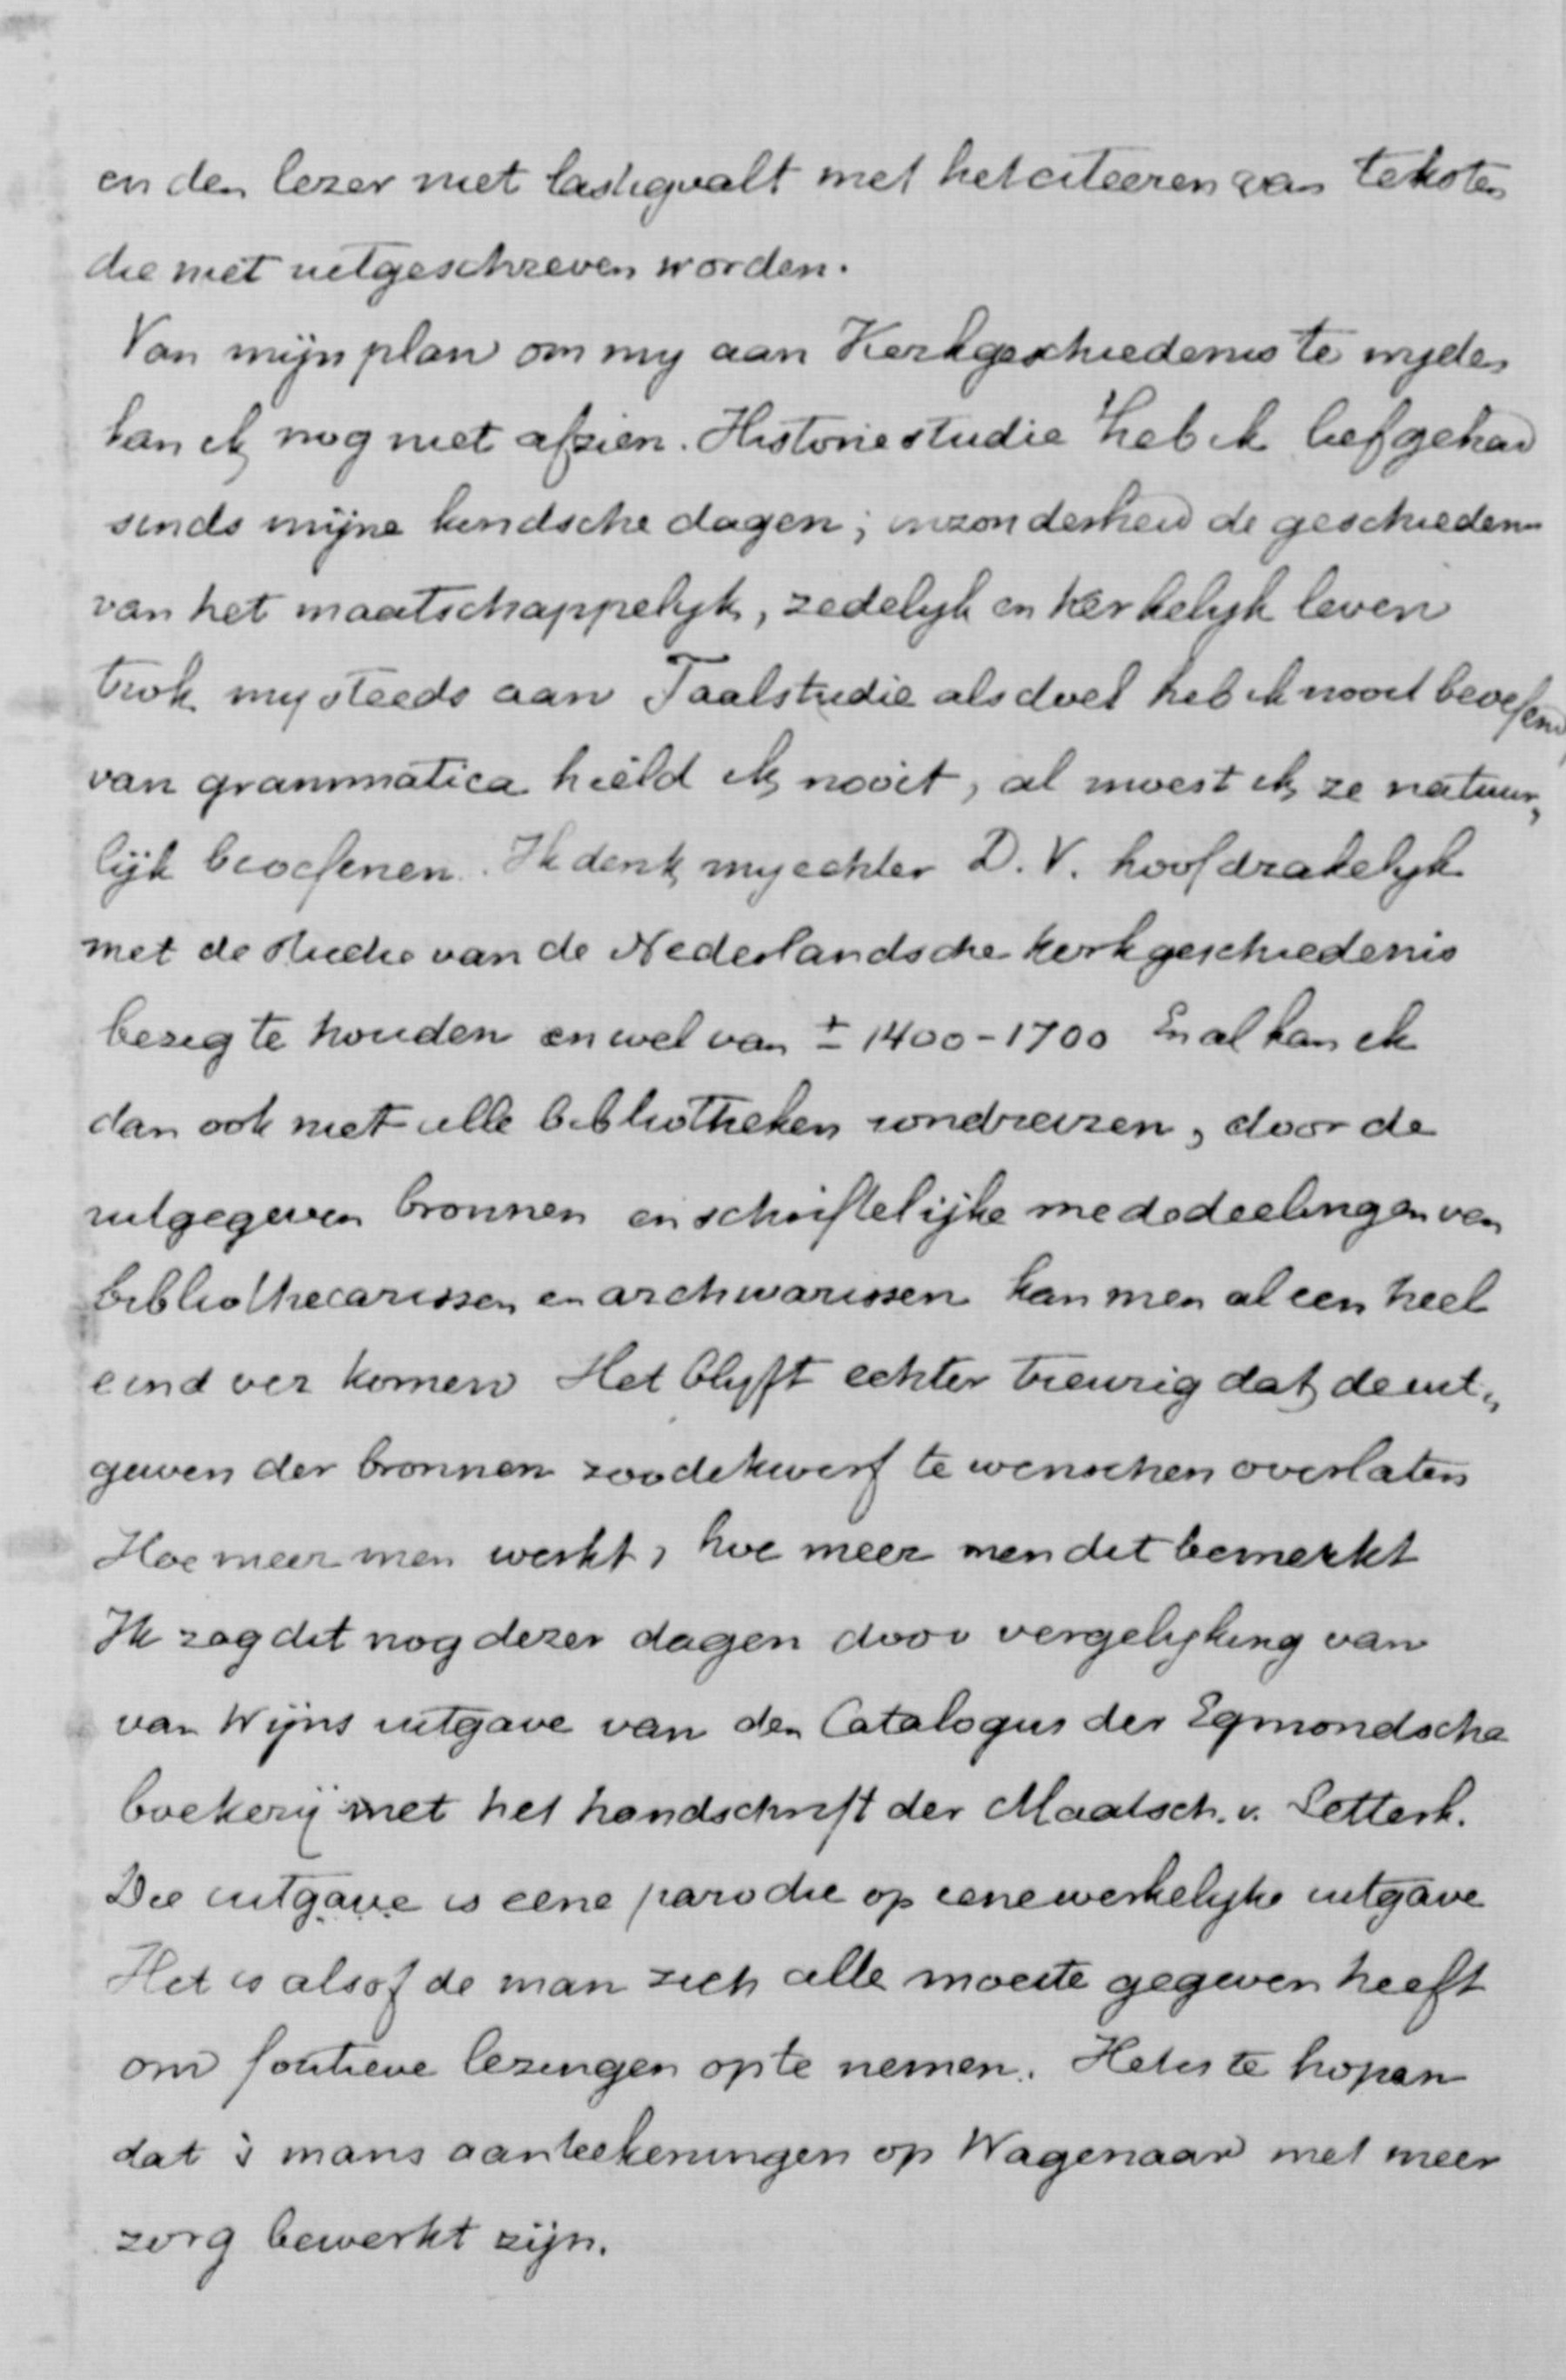 en den lezer niet lastigvalt met het citeeren van teksten
die niet uitgeschreven worden.
Van mijn plan om mij aan Kerkgeschiedenis te wijden
kan ik nog niet afzien. Historiestudie heb ik liefgehad
sinds mijne kindsche dagen; inzonderheid de geschiedenis
van het maatschappelijk, zedelijk en kerkelijk leven
trok mij steeds aan Taalstudie als doel heb ik nooit beoefend,
van grammatica hield ik nooit, al moest ik ze natuur„
lijk beoefenen. Ik denk mij echter D. V. hoofdzakelijk
met de studie van de Nederlandsche kerkgeschiedenis
bezig te houden en wel van ± 1400-1700 En al kan ik
dan ook niet alle bibliotheken rondreizen, door de
uitgegeven bronnen en schriftelijke mededeelingen van
bibliothecarissen en archivarissen kan men al een heel
eind ver komen Het blijft echter treurig dat de uit„
gaven der bronnen zoo dikwerf te wenschen overlaten
Hoe meer men werkt, hoe meer men dit bemerkt
Ik zag dit nog dezer dagen door vergelijking van
van Wijns uitgave van den Catalogus der Egmondsche
boekerij met het handschrift der Maatsch. v. Letterk.
Die uitgave is eene parodie op eene werkelijke uitgave
Het is alsof de man zich alle moeite gegeven heeft
om foutieve lezingen op te nemen. Het is te hopen
dat 's mans aanteekeningen op Wagenaar met meer
zorg bewerkt zijn.